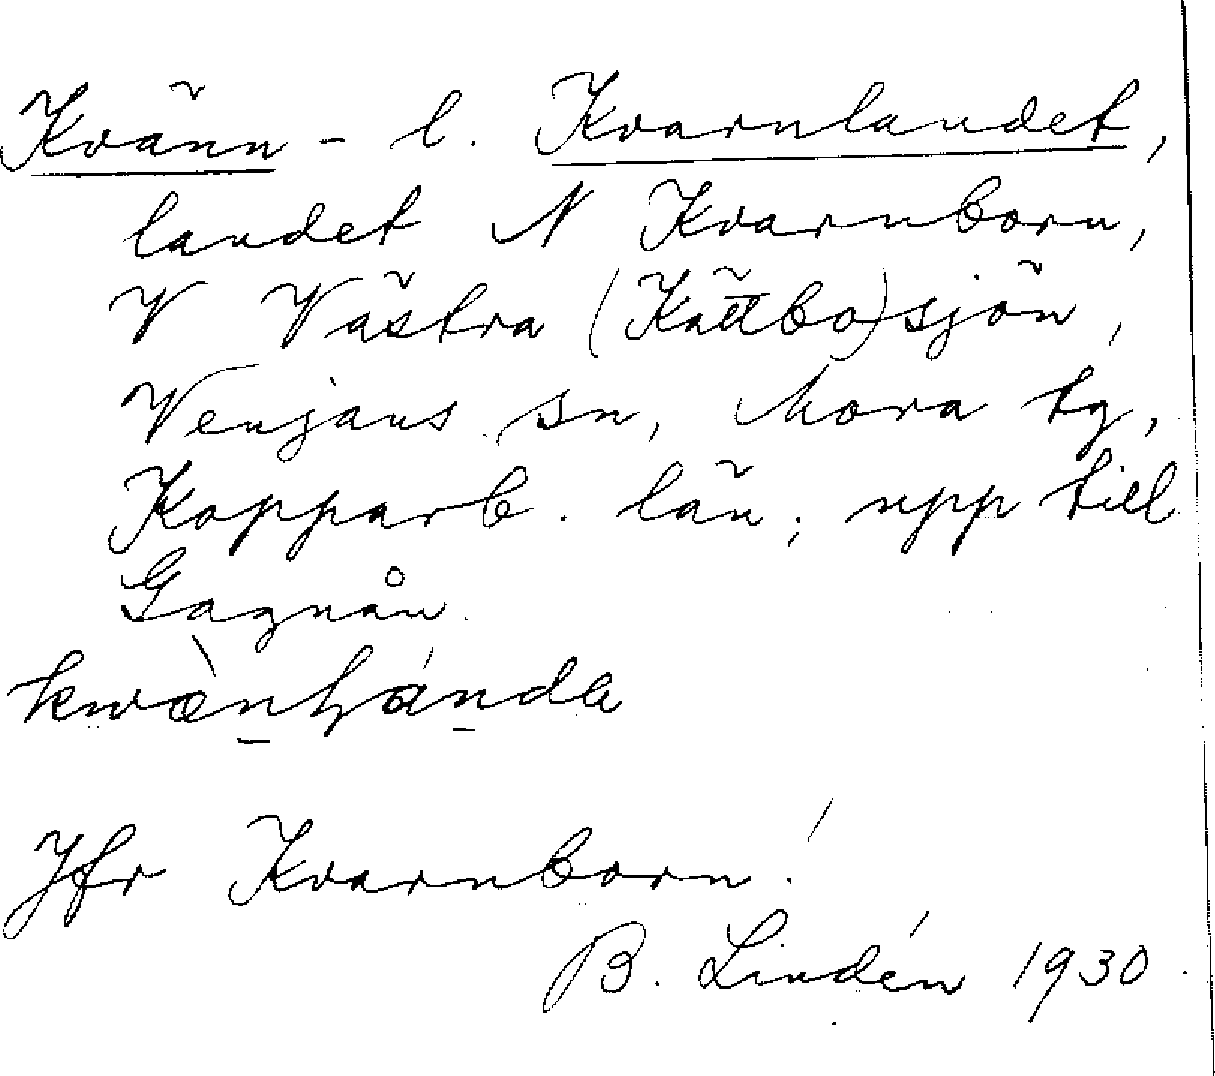 Kvänn- l. Kvarnlandet,
landet N Kvarnborn,
V Västra (Kättbo)sjön,
Venjans sn, Mora tg,
Kopparb. län; upp till
Gagnån.
kwæ̀nhánda
Jfr Kvarnborn!
B. Lindén 1930